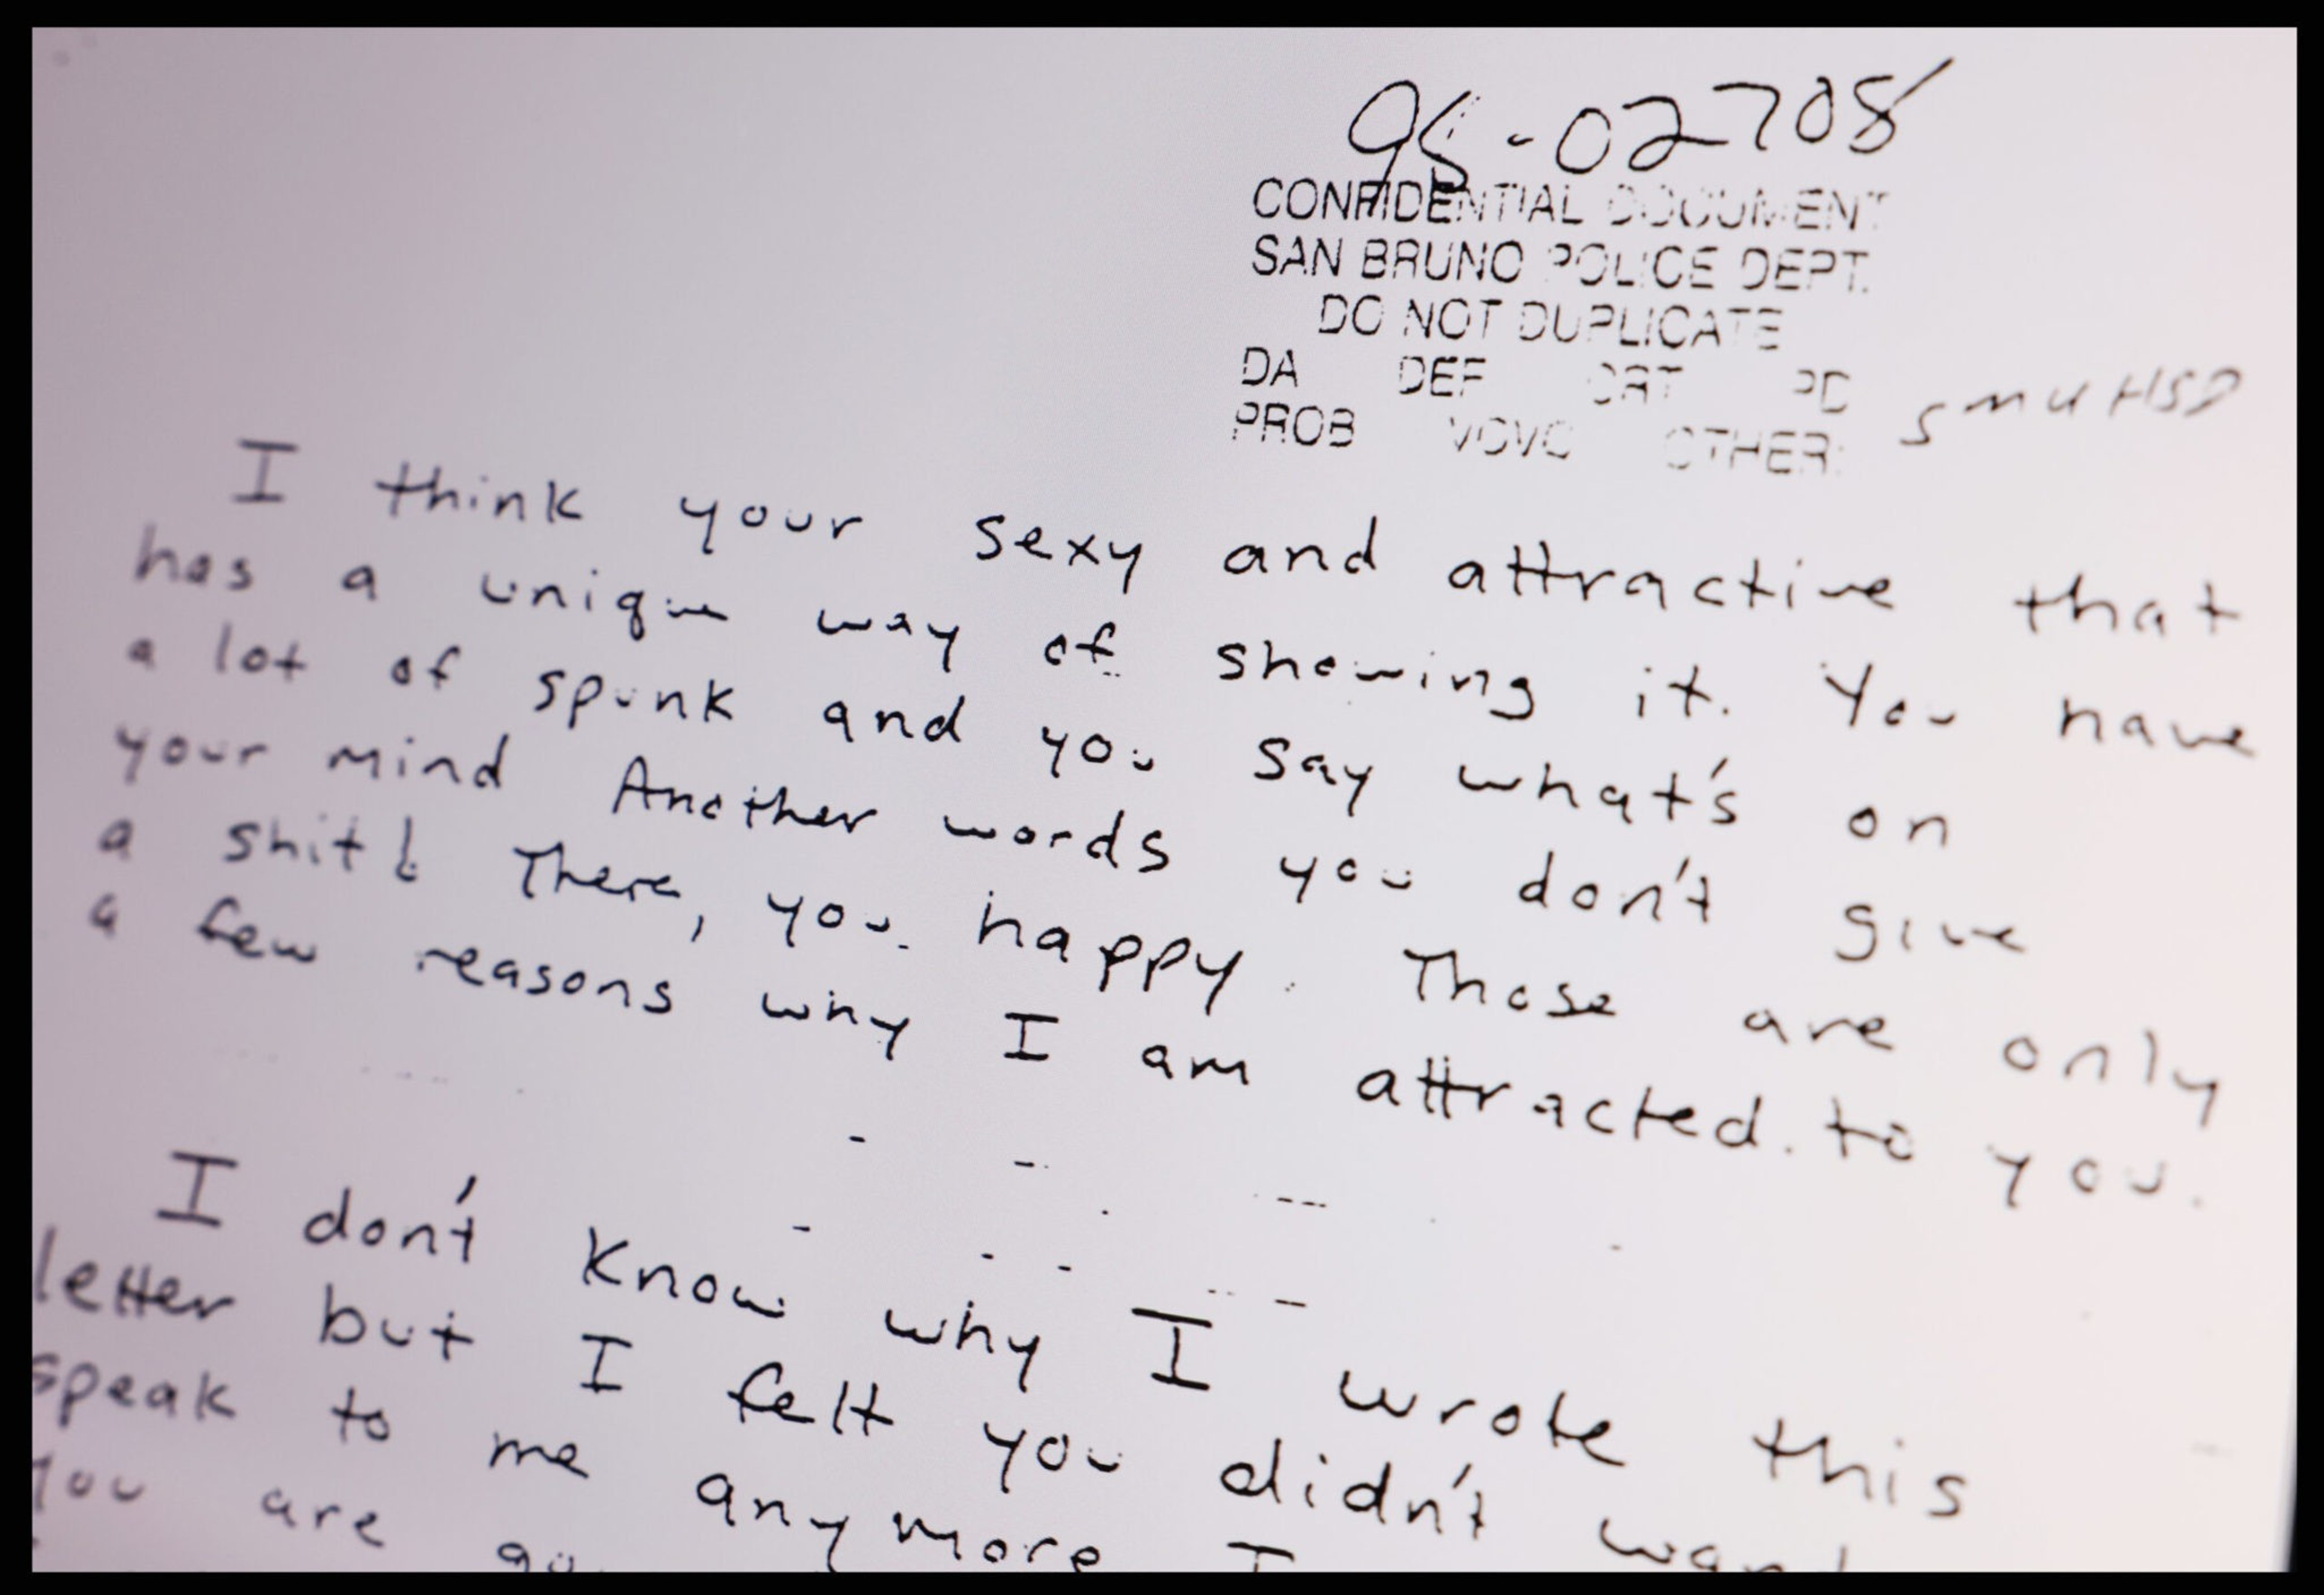 98-02708
CONFIDENTIAL DOCUMENT
SAN BRUNO POLICE DEPT.
DO NOT DUPLICATE
DA DEF CRT PD SMUHSD
PROB VOVC OTHER:
I think your sexy and attractive that
has a unique way of showing it. You have
a lot of spunk and you say what's on
your mind Another words you don't give
a shit! There, you happy. Those are only
a few reasons why I am attracted to you.
I don't know why I wrote this
letter but I felt you didn't want
speak to me anymore I
You are